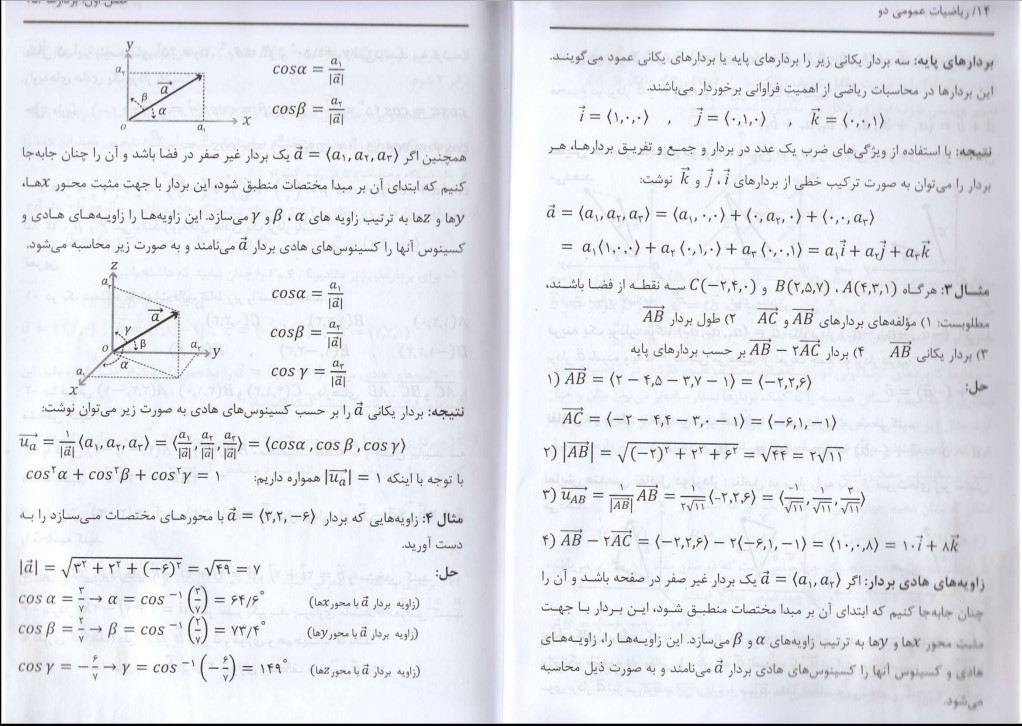 ۱۴/ ریاضیات عمومی دو
بردارهای پایه: سه بردار یکانی زیر را بردارهای پایه یا بردارهای یکانی عمود می‌گوینـد.
این بردارها در محاسبات ریاضی از اهمیت فراوانی برخوردار می‌باشند.
i⃗ = ⟨۱,۰,۰⟩ , j⃗ = ⟨۰,۱,۰⟩ , k⃗ = ⟨۰,۰,۱⟩
نتیجه: با استفاده از ویژگی‌های ضرب یک عدد در بردار و جمـع و تفریـق بردارهـا، هـر
بردار را می‌توان به صورت ترکیب خطی از بردارهای i⃗ ، j⃗ و k⃗ نوشت:
a⃗ = ⟨a₁, a₂, a₃⟩ = ⟨a₁, ۰,۰⟩ + ⟨۰, a₂, ۰⟩ + ⟨۰,۰, a₃⟩
= a₁⟨۱,۰,۰⟩ + a₂⟨۰,۱,۰⟩ + a₃⟨۰,۰,۱⟩ = a₁i⃗ + a₂j⃗ + a₃k⃗
مثـال ۳: هرگـاه A(۴,۳,۱) ، B(۲,۵,۷) و C(−۲,۴,۰) سـه نقطـه از فضـا باشـند،
مطلوبست: ۱) مؤلفه‌های بردارهای AB⃗ و AC⃗ ۲) طول بردار AB⃗
۳) بردار یکانی AB⃗ ۴) بردار AB⃗ − ۲AC⃗ بر حسب بردارهای پایه
حل:
۱) AB⃗ = ⟨۲ − ۴,۵ − ۳,۷ − ۱⟩ = ⟨−۲,۲,۶⟩
AC⃗ = ⟨−۲ − ۴,۴ − ۳,۰ − ۱⟩ = ⟨−۶,۱,−۱⟩
۲) |AB⃗| = √((−۲)² + ۲² + ۶²) = √۴۴ = ۲√۱۱
۳) u⃗AB = ۱/|AB⃗| AB⃗ = ۱/(۲√۱۱) ⟨−۲,۲,۶⟩ = ⟨−۱/√۱۱, ۱/√۱۱, ۳/√۱۱⟩
۴) AB⃗ − ۲AC⃗ = ⟨−۲,۲,۶⟩ − ۲⟨−۶,۱,−۱⟩ = ⟨۱۰,۰,۸⟩ = ۱۰i⃗ + ۸k⃗
زاویه‌های هادی بردار: اگر a⃗ = ⟨a₁, a₂⟩ یک بردار غیر صفر در صفحه باشد و آن را
چنان جابه‌جا کنیم که ابتدای آن بر مبدا مختصات منطبق شـود، ایـن بـردار بـا جهـت
مثبت محور xها و yها به ترتیب زاویه‌های α و β می‌سازد. این زاویـه‌هـا را، زاویـه‌هـای
هادی و کسینوس آنها را کسینوس‌های هادی بردار a⃗ می‌نامند و به صورت ذیل محاسبه
می‌شود.
y
a₂
a⃗
β
α
o
a₁
x
cosα = a₁/|a⃗|
cosβ = a₂/|a⃗|
همچنین اگر a⃗ = ⟨a₁, a₂, a₃⟩ یک بردار غیر صفر در فضا باشد و آن را چنان جابه‌جا
کنیم که ابتدای آن بر مبدا مختصات منطبق شود، این بردار با جهت مثبت محـور xهـا،
yها و zها به ترتیب زاویه های α ، β و γ می‌سازد. این زاویه‌هـا را زاویـه‌هـای هـادی و
کسینوس آنها را کسینوس‌های هادی بردار a⃗ می‌نامند و به صورت زیر محاسبه می‌شود.
z
a₃
a⃗
γ
β
o
α
a₂
y
a₁
x
cosα = a₁/|a⃗|
cosβ = a₂/|a⃗|
cos γ = a₃/|a⃗|
نتیجه: بردار یکانی a⃗ را بر حسب کسینوس‌های هادی به صورت زیر می‌توان نوشت:
u⃗a = ۱/|a⃗| ⟨a₁, a₂, a₃⟩ = ⟨a₁/|a⃗|, a₂/|a⃗|, a₃/|a⃗|⟩ = ⟨cosα, cos β, cos γ⟩
با توجه با اینکه |u⃗a| = ۱ همواره داریم: cos²α + cos²β + cos²γ = ۱
مثال ۴: زاویه‌هایی که بردار a⃗ = ⟨۳,۲,−۶⟩ با محورهـای مختصـات مـی‌سـازد را بـه
دست آورید.
حل: |a⃗| = √(۳² + ۲² + (−۶)²) = √۴۹ = ۷
cos α = ۳/۷ → α = cos⁻¹(۳/۷) = ۶۴/۶° (زاویه بردار a⃗ با محورxها)
cos β = ۲/۷ → β = cos⁻¹(۲/۷) = ۷۳/۴° (زاویه بردار a⃗ با محورyها)
cos γ = −۶/۷ → γ = cos⁻¹(−۶/۷) = ۱۴۹° (زاویه بردار a⃗ با محورzها)